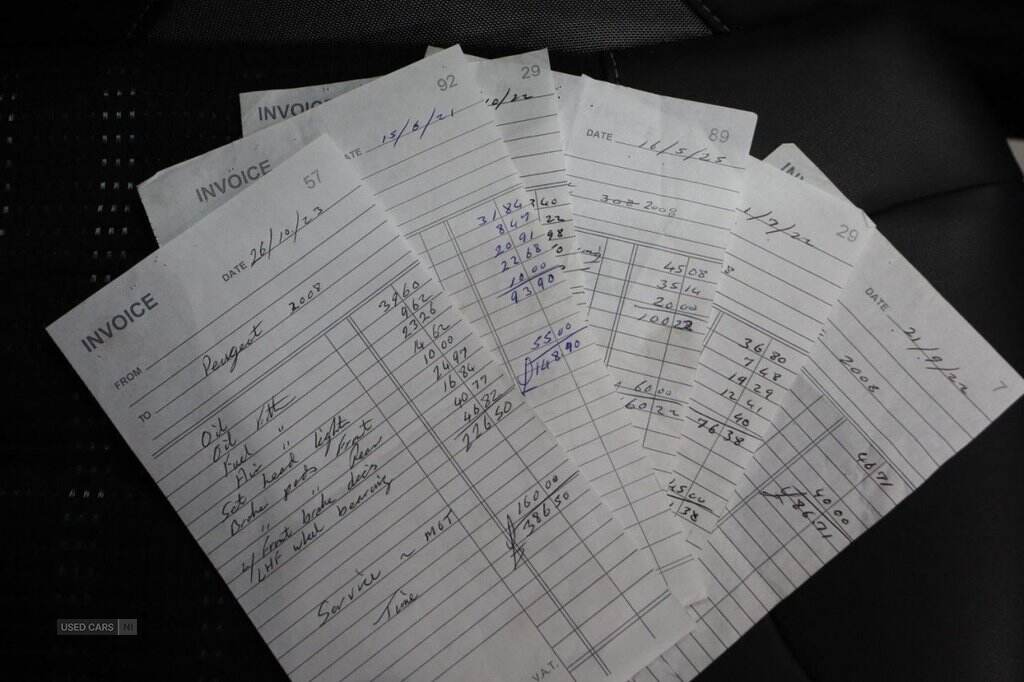 INVOICE
57
DATE 26/10/23
FROM
Peugeot 2008
TO
Oil 39 60
Oil Filth 9 62
Fuel " 23 26
Air " 14 62
Set head light 10 00
Brake pads Front 24 97
" " Rear 16 84
2/ Front brake discs 40 77
LHF wheel bearing 46 82
226 50
Service ~ MOT
Time 160 00
£386 50
V.A.T.
INVOICE
92
ATE 15/6/21
31 84
8 47
20 91
22 68
10 00
93 90
55 00
£148 90
INVOIC
29
10/22
40
22
98
0
89
DATE 16/5/25
308 2008
45 08
35 14
20 00
100 22
60 00
60 22
29
1/7/22
8
36 80
7 48
19 29
12 41
40
76 38
38
IN
7
DATE 21/9/22
2008
46 71
40 00
£86 71
USED CARS NI